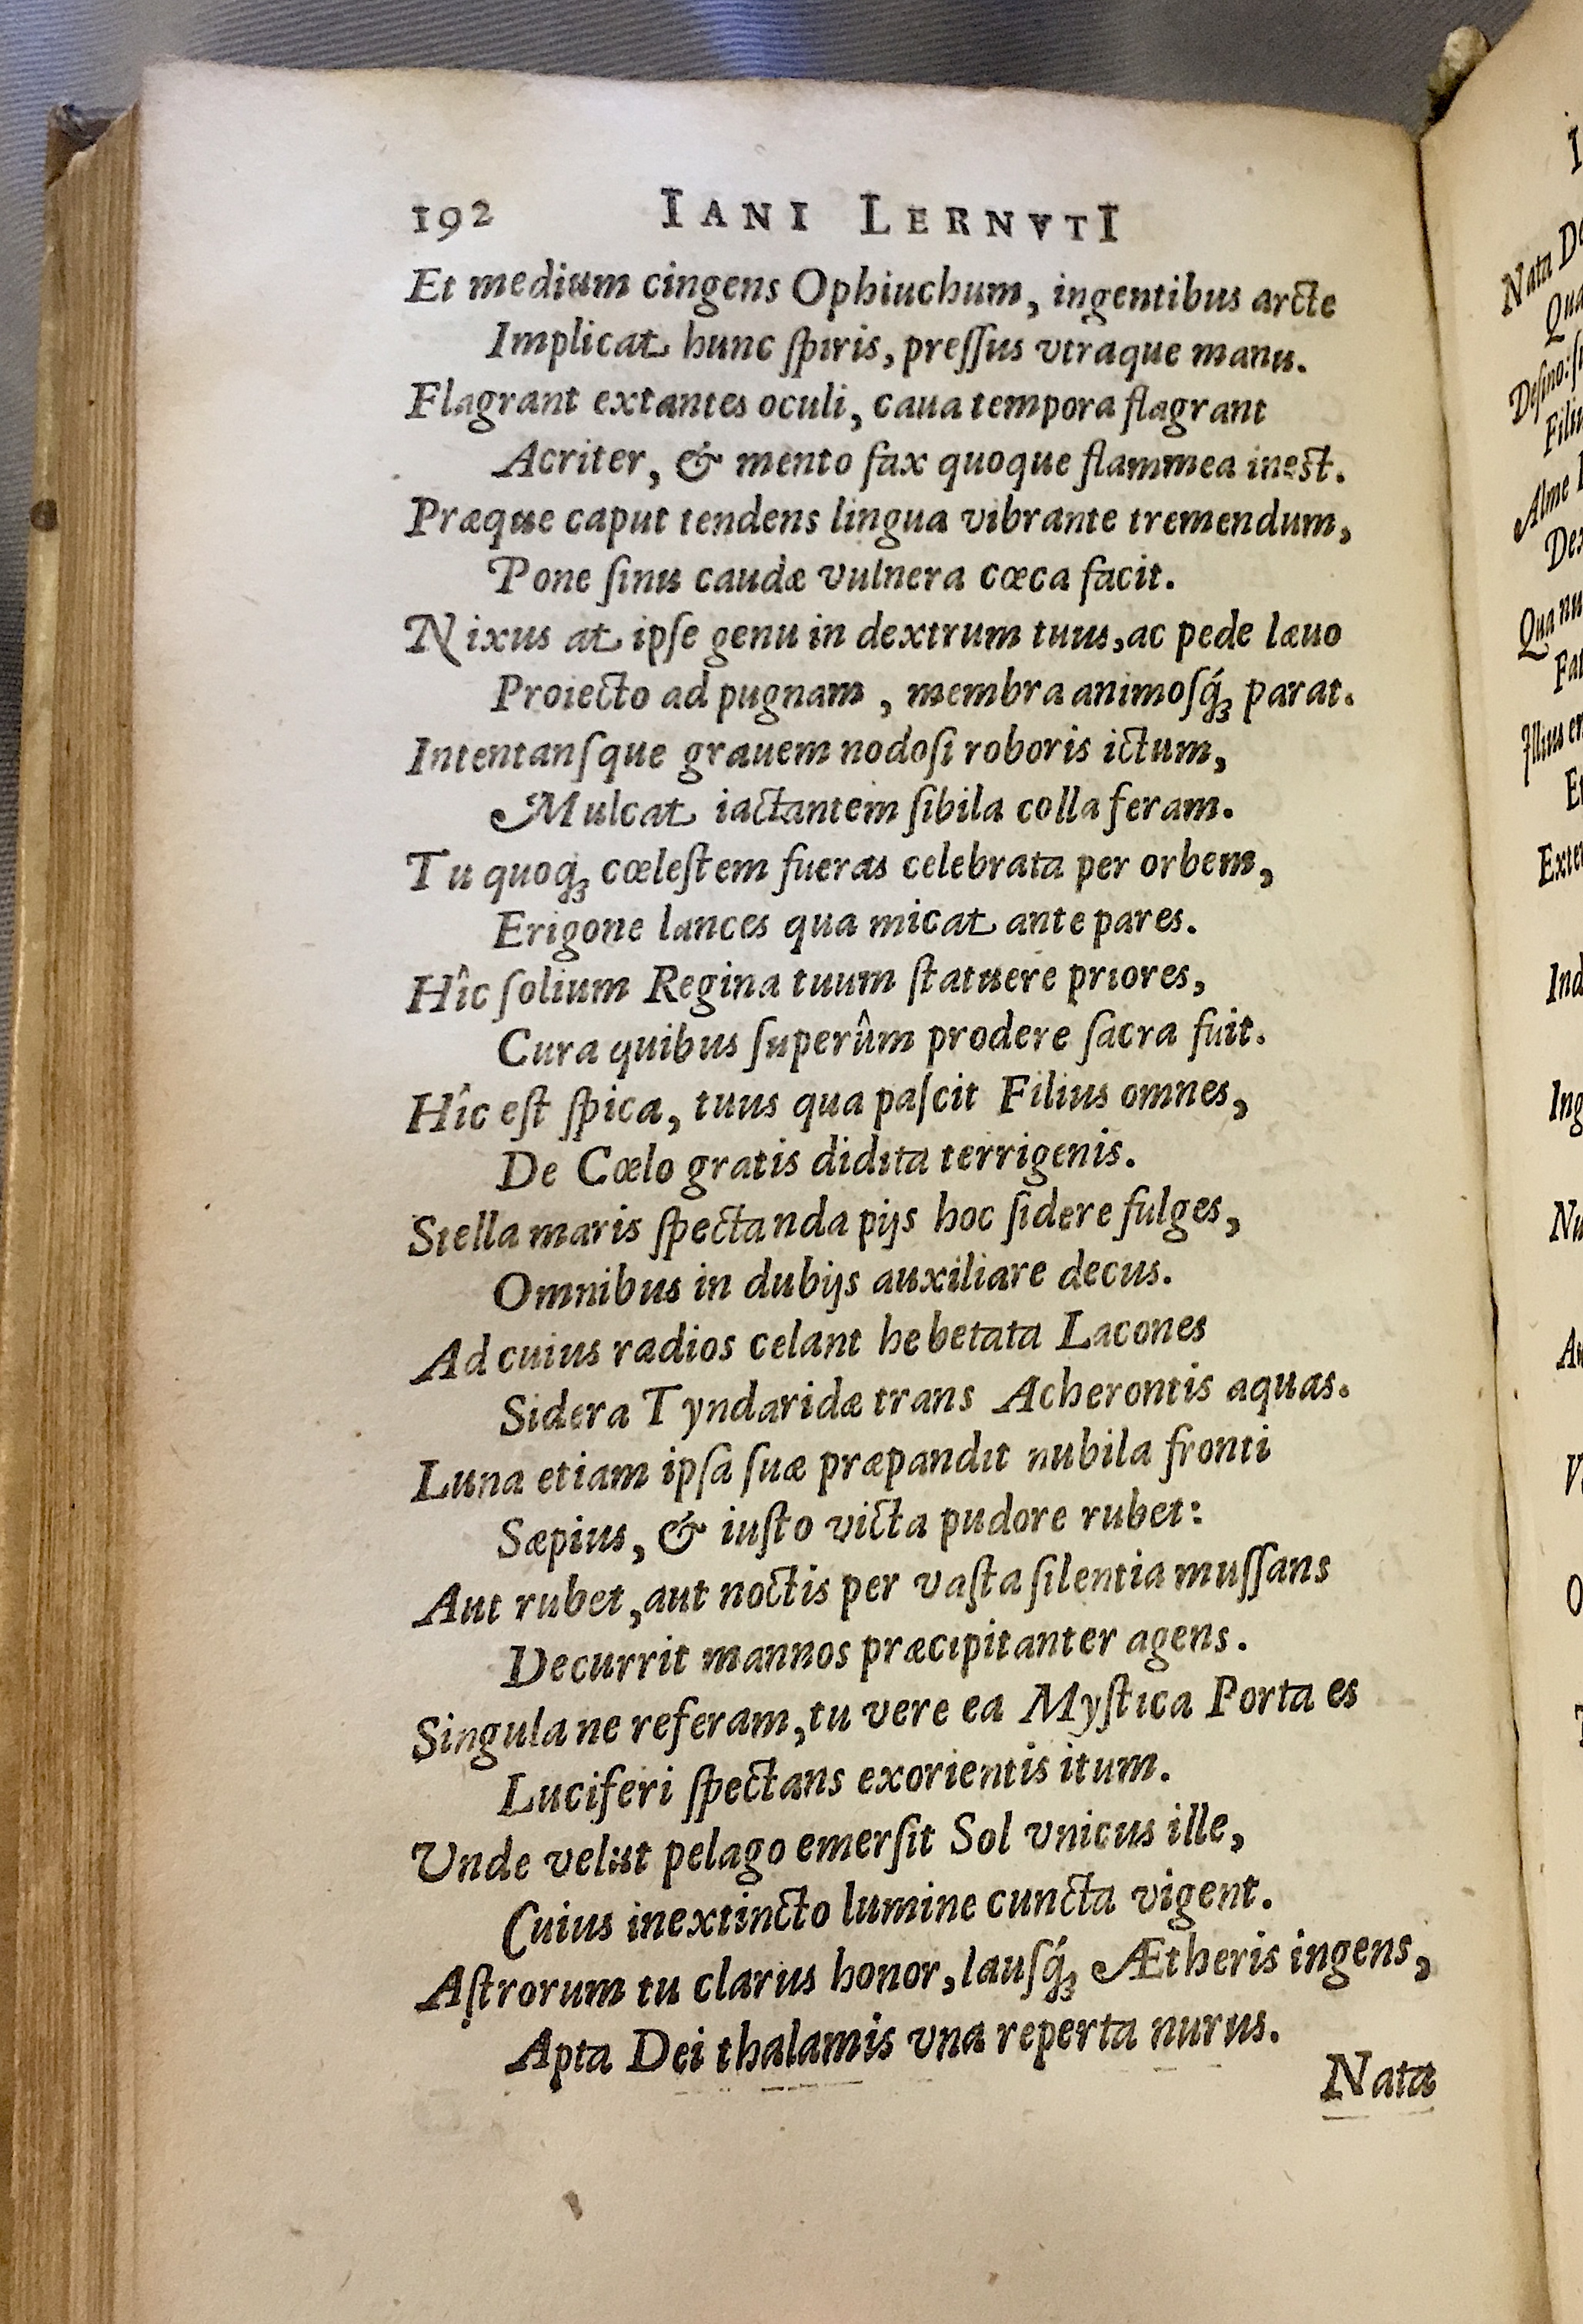 192 IANI LERNVTI
Et medium cingens Ophiuchum, ingentibus arcte
Implicat hunc ſpiris, preſſus vtraque manu.
Flagrant extantes oculi, caua tempora flagrant
Acriter, & mento fax quoque flammea ineſt.
Præque caput tendens lingua vibrante tremendum,
Pone ſinu caudæ vulnera cœca facit.
Nixus at ipſe genu in dextrum tuus, ac pede læuo
Proiecto ad pugnam, membra animoſq́ꝫ parat.
Intentanſque grauem nodoſi roboris ictum,
Mulcat iactantem ſibila colla feram.
Tu quoqꝫ cœleſtem fueras celebrata per orbem,
Erigone lances qua micat ante pares.
Hîc ſolium Regina tuum ſtatuere priores,
Cura quibus ſuperûm prodere ſacra fuit.
Hîc eſt ſpica, tuus qua paſcit Filius omnes,
De Cœlo gratis didita terrigenis.
Stella maris ſpectanda pijs hoc ſidere fulges,
Omnibus in dubijs auxiliare decus.
Ad cuius radios celant hebetata Lacones
Sidera Tyndaridæ trans Acherontis aquas.
Luna etiam ipſa ſuæ præpandit nubila fronti
Sæpius, & iuſto victa pudore rubet:
Aut rubet, aut noctis per vaſta ſilentia muſſans
Decurrit mannos præcipitanter agens.
Singula ne referam, tu vere ea Myſtica Porta es
Luciferi ſpectans exorientis itum.
Unde velut pelago emerſit Sol vnicus ille,
Cuius inextincto lumine cuncta vigent.
Aſtrorum tu clarus honor, lauſq́ꝫ Ætheris ingens,
Apta Dei thalamis vna reperta nurus.
Nata
Nata
Alme
Qua nu
Illius